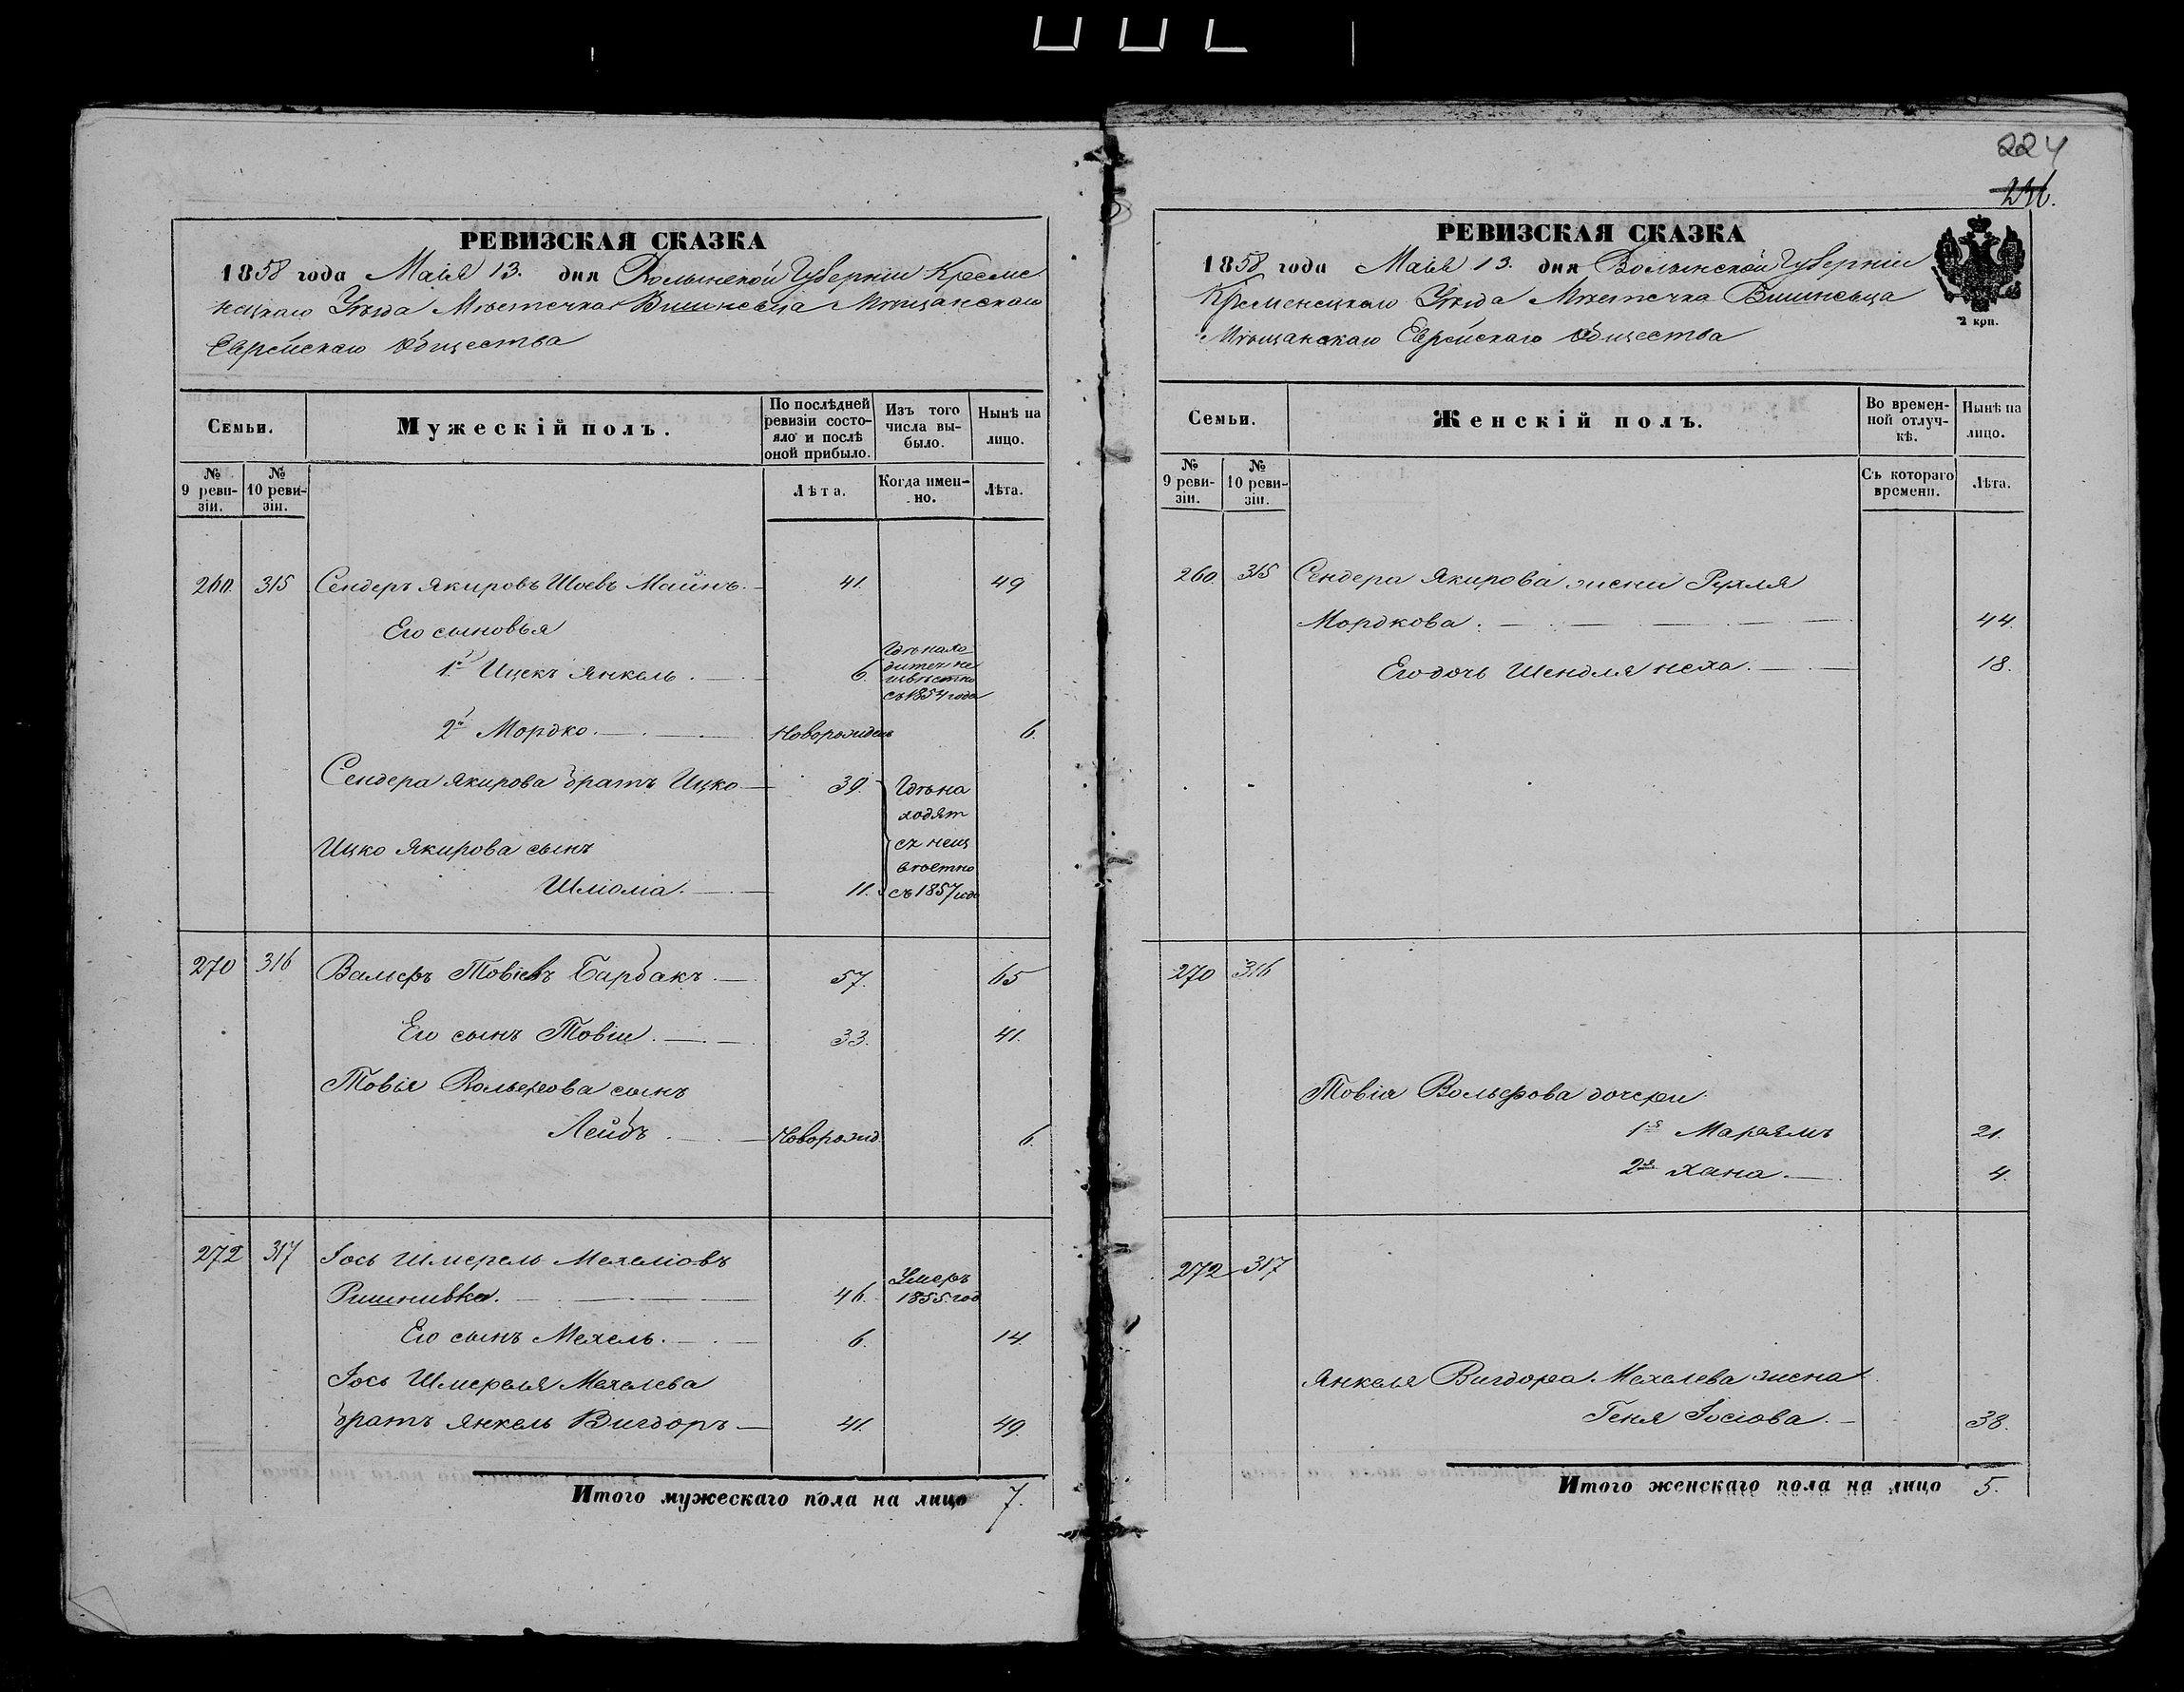 224
236.
РЕВИЗСКАЯ СКАЗКА
1858 года Маія 13. дня Волынской Губерніи Креме
нецкаго Уѣзда Мѣстечка Вишневца Мѣщанскаго
Еврейскаго Общества
Семьи.
Мужескій полъ.
По послѣдней ревизіи состояло и послѣ оной прибыло.
Изъ того числа выбыло.
Нынѣ на лицо.
№ 9 ревизіи.
№ 10 ревизіи.
Лѣта.
Когда именно.
Лѣта.
260. 315 Сендеръ Якировъ Шоевъ Майнъ. 41. 49
Его сыновья
1й Ицекъ Янкель. 6. Гдѣ нахо
дитсѧ не
извѣстно
съ 1854 года
2й Мордко. Новорожден 6.
Сендера Якирова братъ Ицко 39. Гдѣ на
ходят
Ицко Якирова сынъ ся неиз
вѣстно
Шлиома. 11. съ 1857 года
270 316 Вальфъ Товіевъ Барбакъ 57. 65
Его сынъ Товіи. 33. 41.
Товія Вольфова сынъ
Лейбъ Новорожд. 6.
272 317 Іось Шмерель Мехелiовъ
Ришнивка. 46. Умеръ
1855. год
Его сынъ Мехель. 6. 14.
Іось Шмереля Мехелева
братъ Янкель Вигдоръ 41. 49.
Итого мужескаго пола на лицо 7.
РЕВИЗСКАЯ СКАЗКА
1858 года Маія 13. дня Волынской Губерніи
Кременецкаго Уѣзда Мѣстечка Вишневца
Мѣщанскаго Еврейскаго Общества
2 коп.
Семьи.
Женскій полъ.
Во временной отлучкѣ.
Нынѣ на лицо.
№ 9 ревизіи.
№ 10 ревизіи.
Съ котораго времени.
Лѣта.
260 315 Сендера Якирова жени Рухля
Мордкова. 44.
Его дочь Шендля Неха. 18.
270 316
Товія Вольфова дочери
1я Маріямъ 21.
2я Хана. 4.
272 317
Янкеля Вигдора Мехелева жена
Геня Іосіова. 38.
Итого женскаго пола на лицо 5.